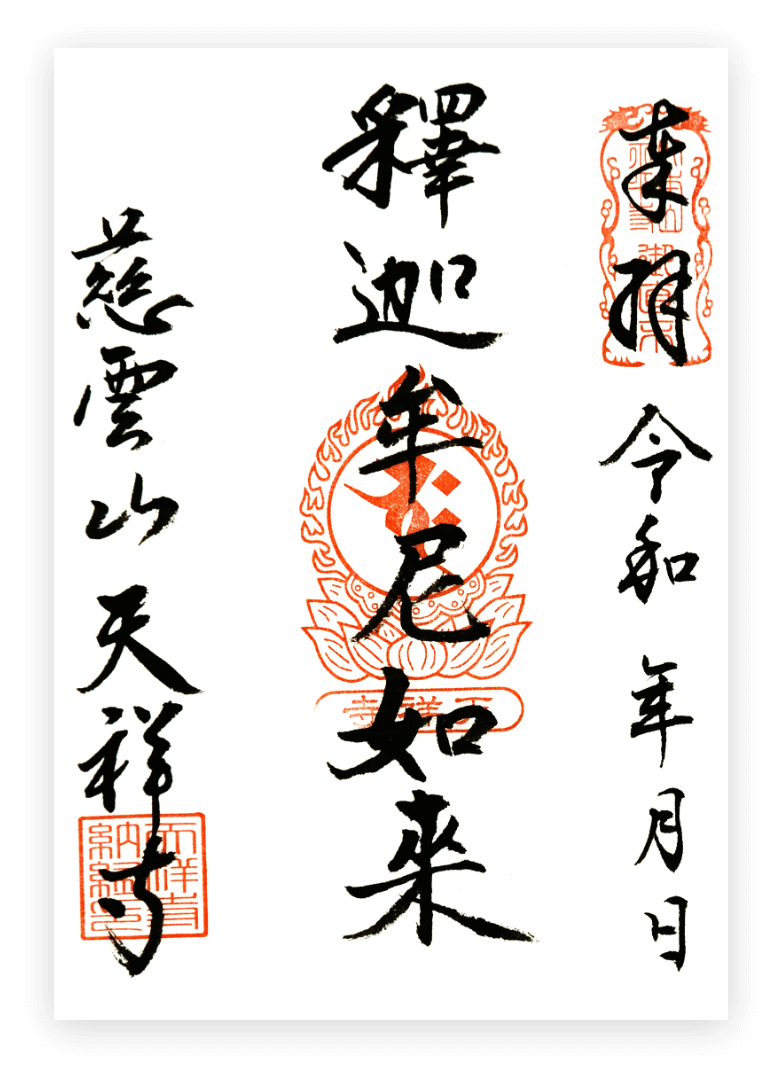 奉拜
令和 年月日
釋迦牟尼如來
天祥寺
慈雲山 天祥寺
天祥寺
納經印